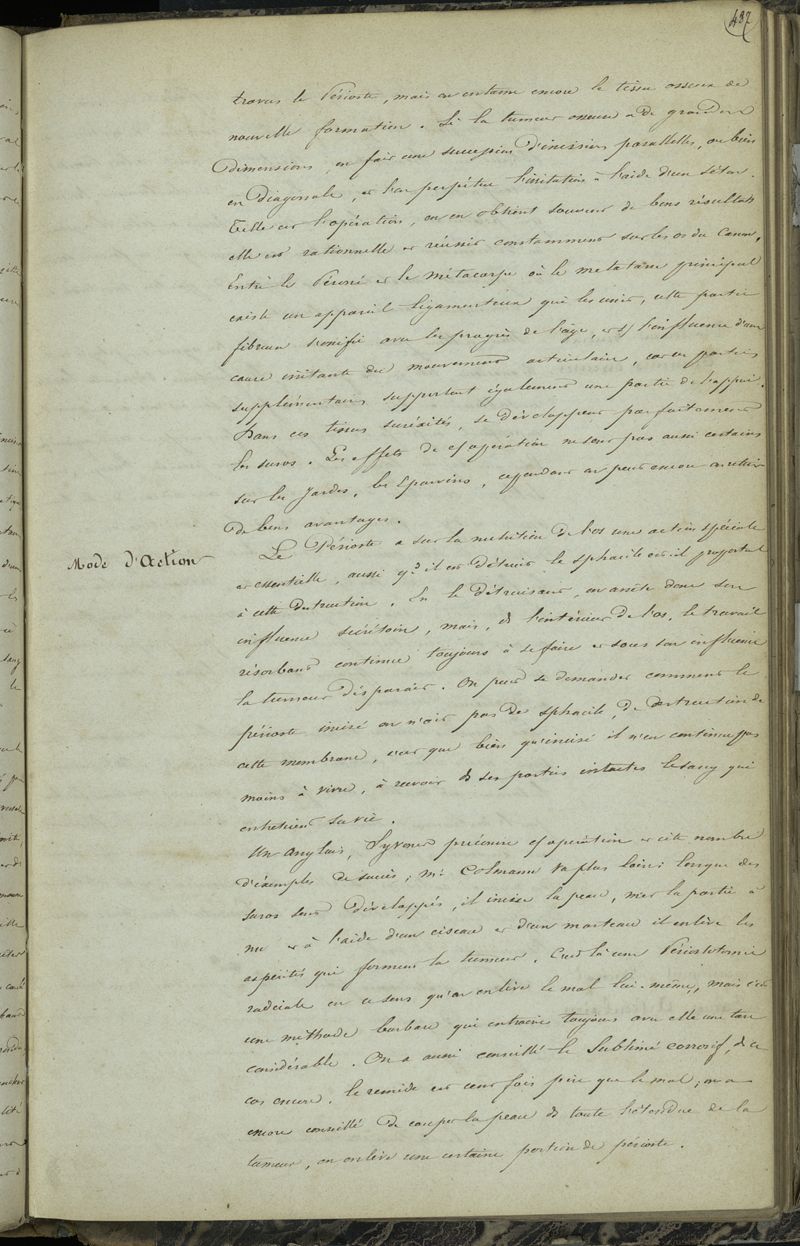 437
travers le Périoste, mais on entame encore le tissu osseux de
nouvelle formation. Si la tumeur osseuse a de grandes
dimensions, on fait une succession d'incisions parallelles, ou bien
en diagonale, et l'on perpétue l'irritation à l'aide d'un séton.
Telle est l'opération, on en obtient souvent de bons résultats
elle est rationnelle et réussit constamment sur les os du Canon.
Entre le Péroné et le métacarpe où le metatarse principal
existe un appareil ligamenteux qui les unit, cette partie
fibreuse s'ossifie avec les progrès de l'age, et s/ l'influence d'une
cause irritante du mouvement articulaire, car ces parties
supplémentaires supportent également une partie de l'appui.
Dans ces tissus surexcités, se développent parfaitement
les suros. Les effets de cte opération ne sont pas aussi certains
sur les Jardes, les Eparvins, cependant on peut encore en retirer
de bons avantages.
Mode d'Action
Le Périoste a sur la nutrition de l'os une action spéciale
et essentielle, aussi qd il est détruit le sphacèle est-il proportionnel
à cette destruction. En le détruisant, on arrête donc son
influence secrétoire, mais, ds l'intérieur de l'os, le travail
résorbant continue toujours à se faire et sous son influence
la tumeur disparait. On peut se demander comment le
périoste incisé on n'ait pas de sphacèle, de destruction de
cette membrane, c'est que bien qu'incisé il n'en continue pas
moins à vivre, à recevoir ds ses parties intactes le sang qui
entretient sa vie.
Un Anglais, Syvone préconise cte opération et cite nombre
d'éxemples de succès; Mr Colmann va plus loin; lorsque des
suros sont développés, il incise la peau, met la partie à
nu et à l'aide d'un ciseau et d'un marteau il enlève les
aspérités qui forment la tumeur. C'est là une Périostotomie
radicale en ce sens qu'on enlève le mal lui-même, mais c'est
une méthode barbare qui entraine toujours avec elle une tare
considérable. On a aussi conseillé le Sublimé corrosif, ds ce
cas encore, le remède est cent fois pire que le mal; on a
encore conseillé de couper la peau ds toute l'étendue de la
tumeur, on enlève une certaine portion de périoste.